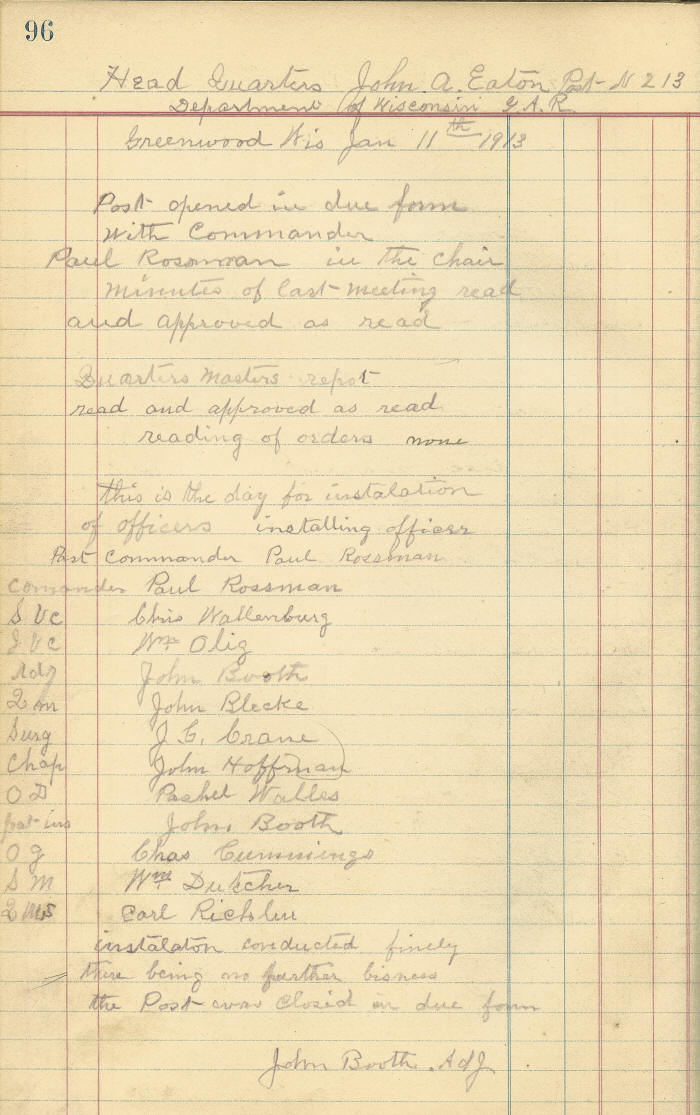 96
Head Quarters John. A. Eaton Post N 213
Department of Wisconsin G.A.R.
Greenwood Wis Jan 11th 1913
Post opened in due form
with Commander
Paul Rossman in the chair
minutes of last meeting read
and approved as read
Quarters Masters repot
read and approved as read
reading of orders none
this is the day for instalation
of officers installing officer
Past Commander Paul Rossman
Comander Paul Rossman
S Vc Chris Wallenburg
J Vc Wm Olig
Adj John Booth
Q m John Blecke
Surg J. G. Crane
Chap John Hoffman
O D Walles
pat ins John. Booth
O g Chas Cummings
S M Wm Dutcher
Q Ms Carl
instalaton conducted finely
there being no further bisness
the Post was Closed in due form
John Booth. Adj